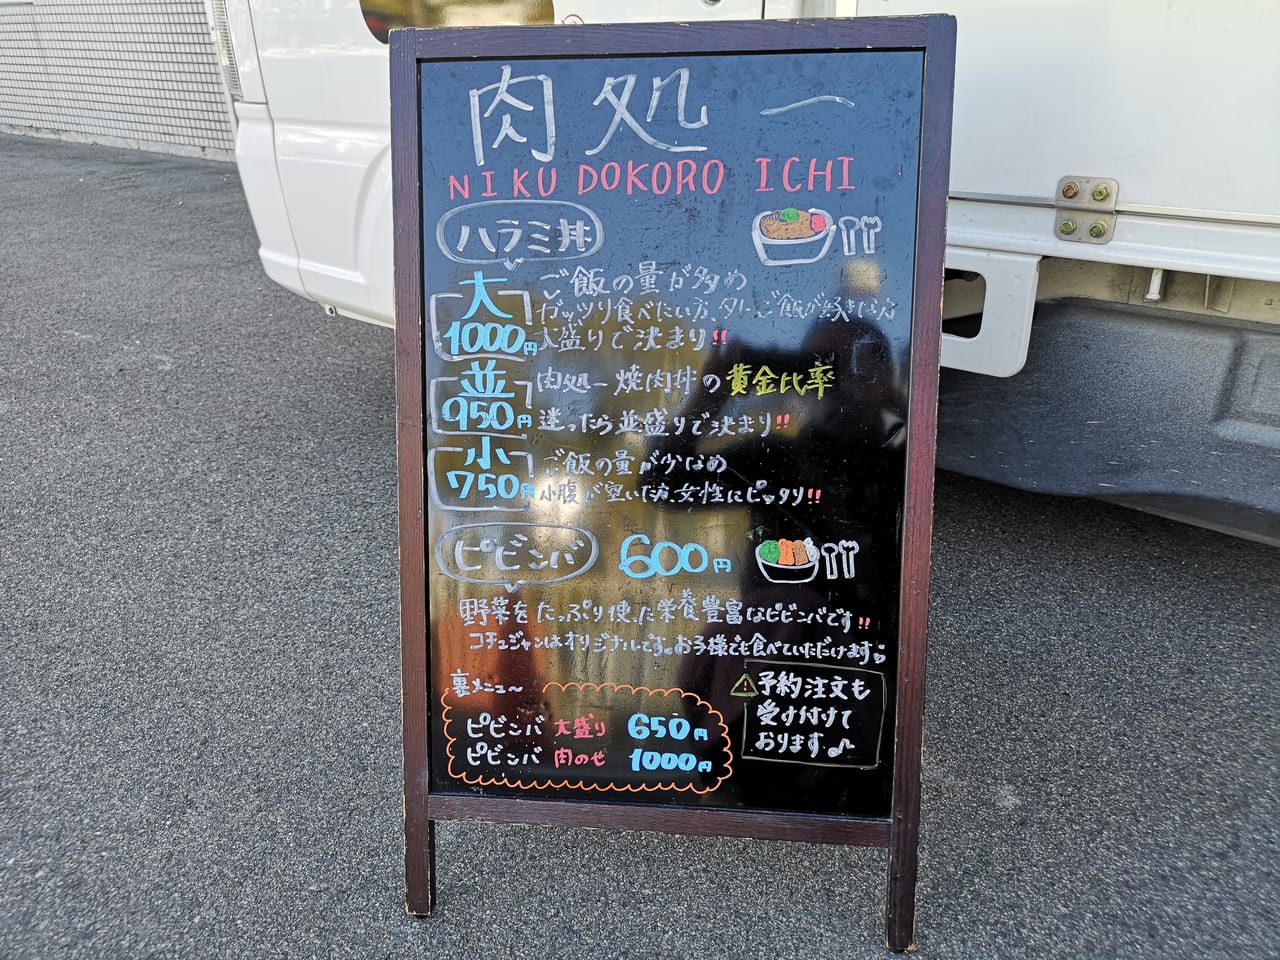 肉処一
NIKU DOKORO ICHI
ハラミ丼
大
1000円
ご飯の量が多め
ガッツリ食べたい方、夕レご飯が好きな方
大盛りで決まり!!
並
950円
肉処一焼肉丼の黄金比率
迷ったら並盛りで決まり!!
小
750円
ご飯の量が少なめ
小腹が空いた方、女性にピッタリ!!
ピビンバ 600円
野菜をたっぷり使った栄養豊富なピビンバです!!
コチュジャンはオリジナルです。お子様でも食べていただけます
裏メニュ〜
ピビンバ 大盛り 650円
ピビンバ 肉のせ 1000円
⚠予約注文も
受け付けて
おります♪